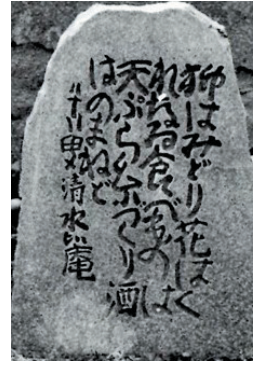 柳はみどり花はく
れなゐ食べものは
天ぷらおつくり酒
はのまねど
清水庵